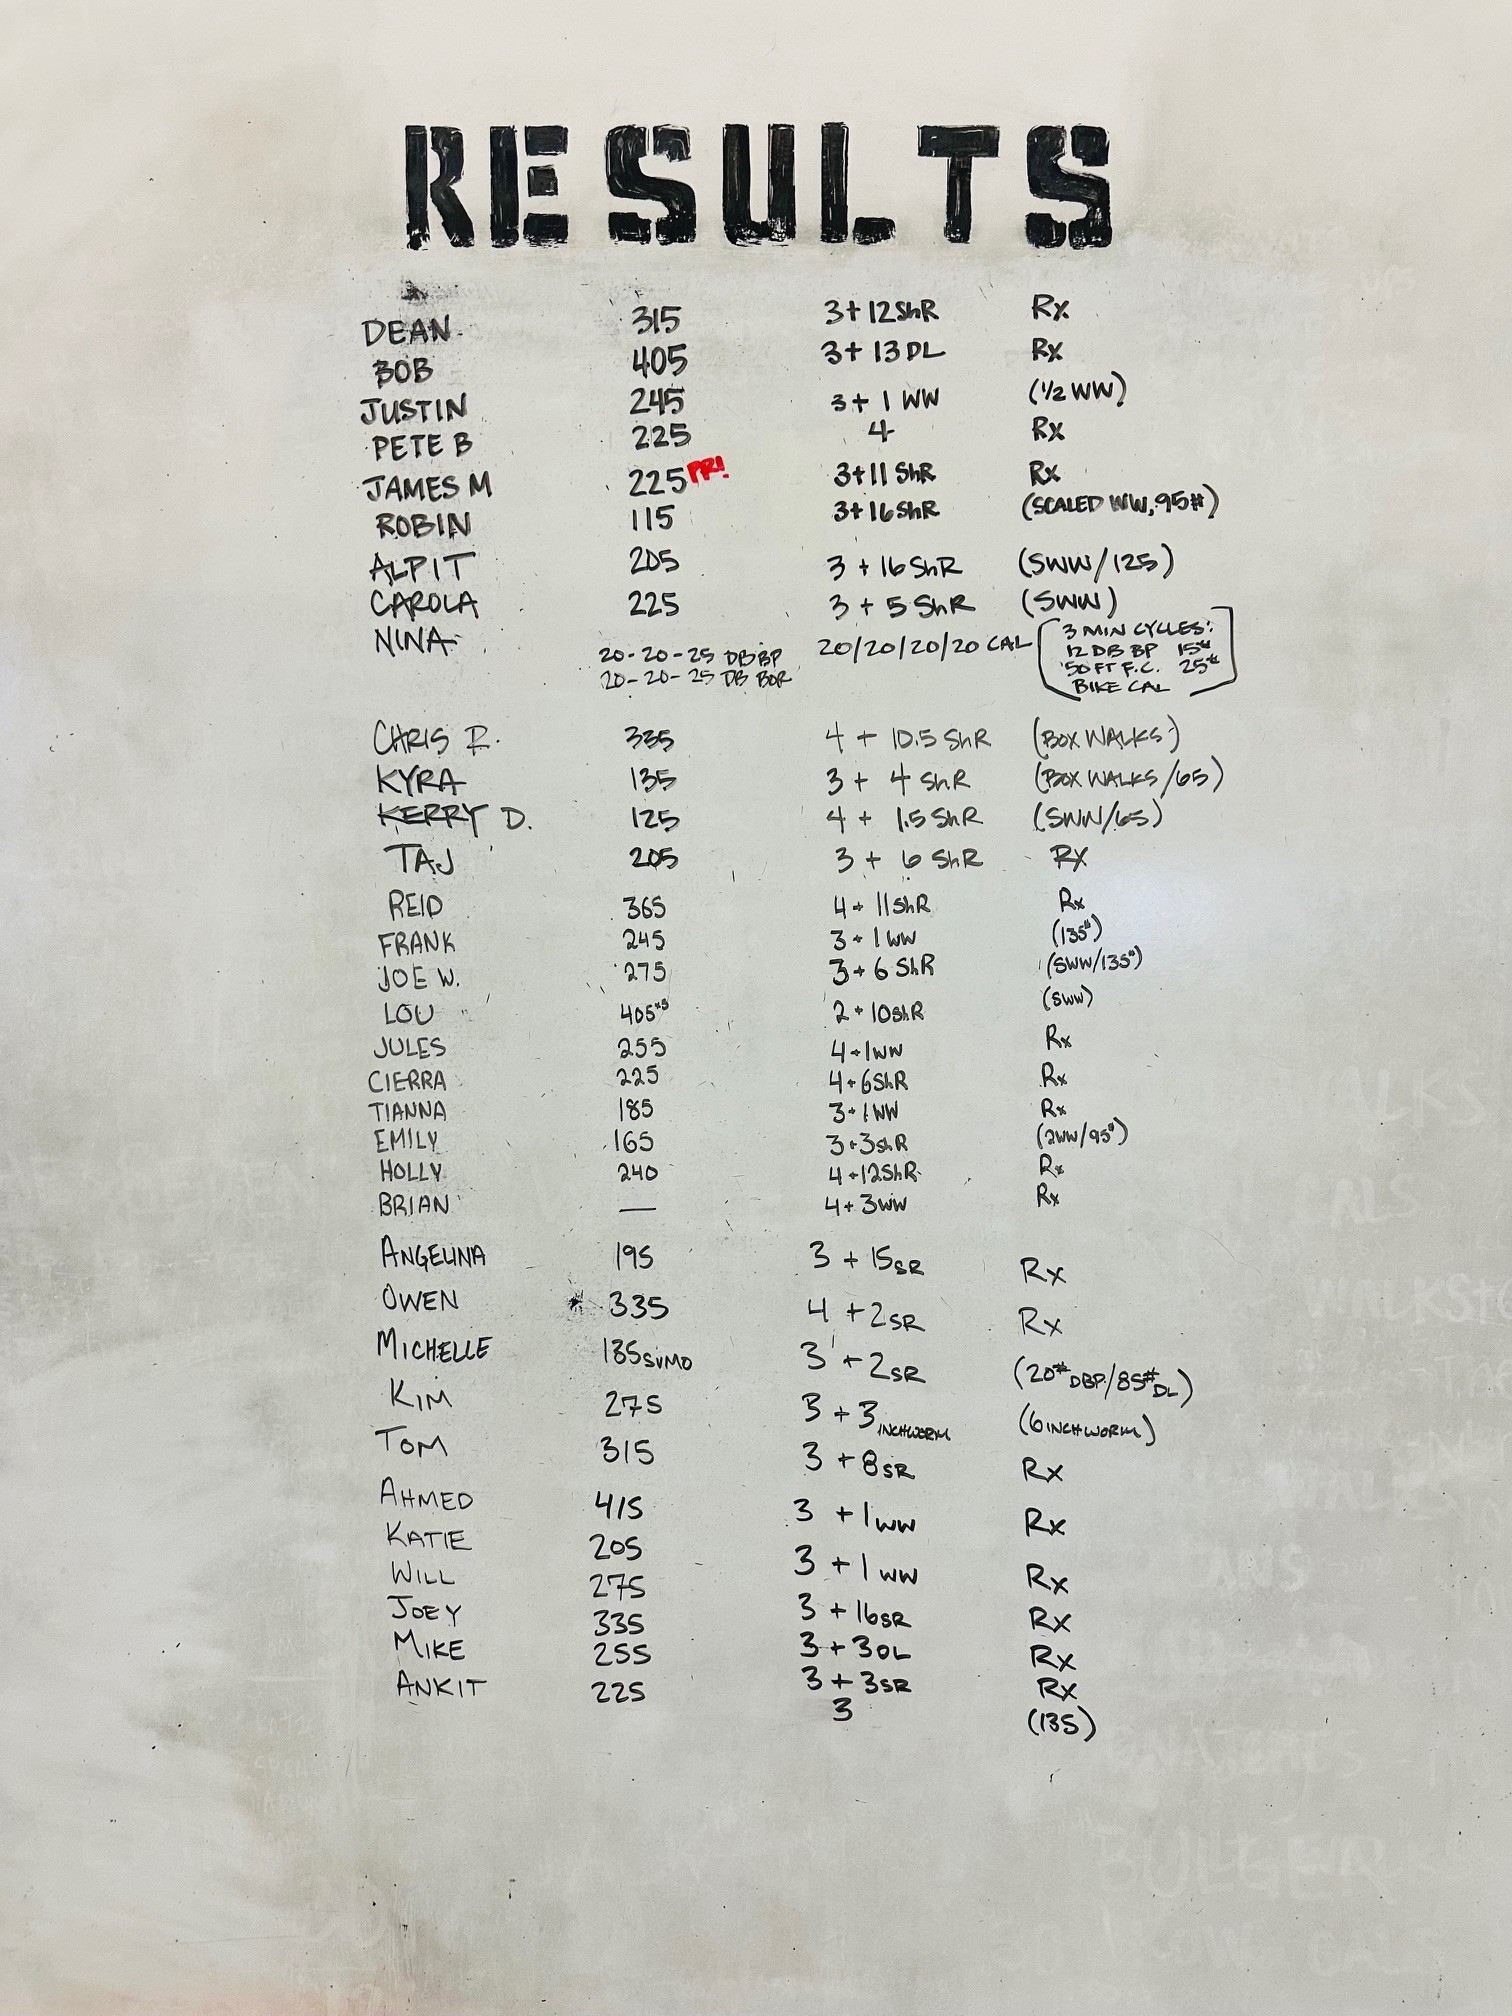 RESULTS
DEAN 315 3+12ShR Rx
BOB 405 3+13DL Rx
JUSTIN 245 3+1 WW (1/2 WW)
PETE B 225 4 Rx
JAMES M 225 PR! 3+11 ShR Rx
ROBIN 115 3+16ShR (SCALED WW, 95#)
ALPIT 205 3+16ShR (SWW/125)
CAROLA 225 3+5 ShR (SWW)
NINA 20-20-25 DB BP 20/20/20/20 CAL [3 MIN CYCLES:
20-20-25 DB BOR 12 DB BP 15#
50 FT F.C. 25#
BIKE CAL]
CHRIS R. 335 4+10.5 ShR (BOX WALKS)
KYRA 135 3+4 ShR (BOX WALKS/65)
KERRY D. 125 4+1.5 ShR (SWW/65)
TAJ 205 3+6 ShR RX
REID 365 4+11ShR Rx
FRANK 245 3+1WW (135#)
JOE W. 275 3+6 ShR (SWW/135#)
LOU 405x3 2+10ShR (SWW)
JULES 255 4+1WW Rx
CIERRA 225 4+6ShR Rx
TIANNA 185 3+1WW Rx
EMILY 165 3+3ShR (2WW/95#)
HOLLY 240 4+12ShR Rx
BRIAN — 4+3WW Rx
ANGELINA 195 3+15SR Rx
OWEN 335 4+2SR Rx
MICHELLE 135 SUMO 3+2SR (20# DBP/85# DL)
KIM 275 3+3 INCHWORM (6 INCHWORM)
TOM 315 3+8SR Rx
AHMED 415 3+1WW Rx
KATIE 205 3+1WW Rx
WILL 275 3+16SR Rx
JOEY 335 3+3DL Rx
MIKE 255 3+3SR Rx
ANKIT 225 3 (135)